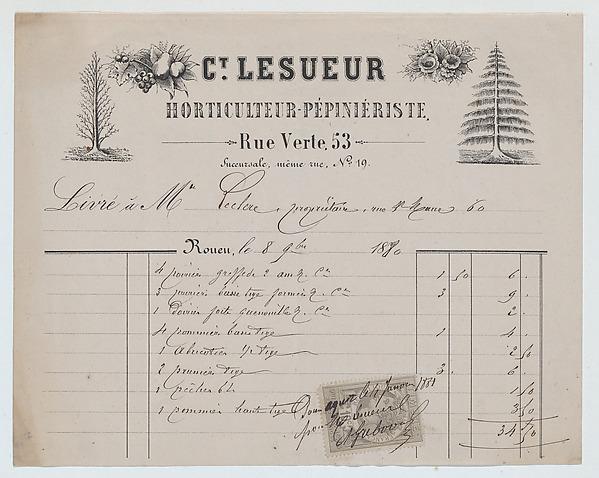 CT. LESUEUR
HORTICULTEUR-PÉPINIÉRISTE,
Rue Verte, 53
Succursale, même rue, No. 19.
Livré à Mr Leclerc, propriétaire, rue St Maur 60
Rouen, le 8 9bre 1880
4 poiriers greffe de 2 ans 1 50 6 .
3 poiriers basse tige formés 3 9 .
1 Poirier forte quenouille 2 .
4 pommiers basse tige 1 4 .
1 Abricotier 1/2 tige 2 50
2 pruniers tige 3 . 6 .
1 pêcher 1 50
1 pommier haute tige 3 50
34 50
Pour acquit le janvier 1881
pour Lesueur